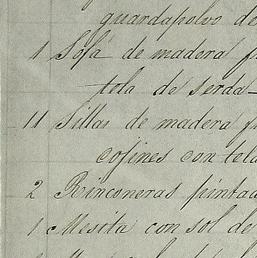 guardapolvo de
1 Sofá de madera
tela de serda
11 Sillas de madera
cojines con tela
2 Rinconeras pintad
1 Mesita con sol de